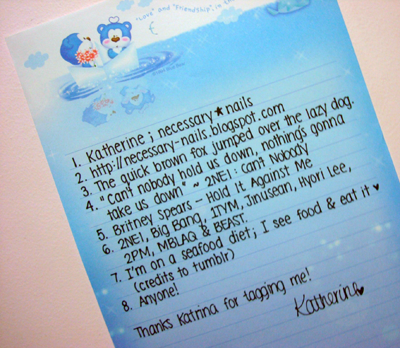 "Love" and "friendship", is
1. Katherine ; necessary★nails
2. http://necessary-nails.blogspot.com
3. The quick brown fox jumped over the lazy dog.
4. "Can't nobody hold us down, nothing's gonna
take us down" ~ 2NE1 : Can't Nobody
5. Britney Spears - Hold It Against Me
6. 2NE1, Big Bang, 1TYM, Jinusean, Hyori Lee,
2PM, MBLAQ & BEAST.
7. I'm on a seafood diet; I see food & eat it ♥
(credits to tumblr)
8. Anyone!
Thanks Katrina for tagging me!
Katherine♥